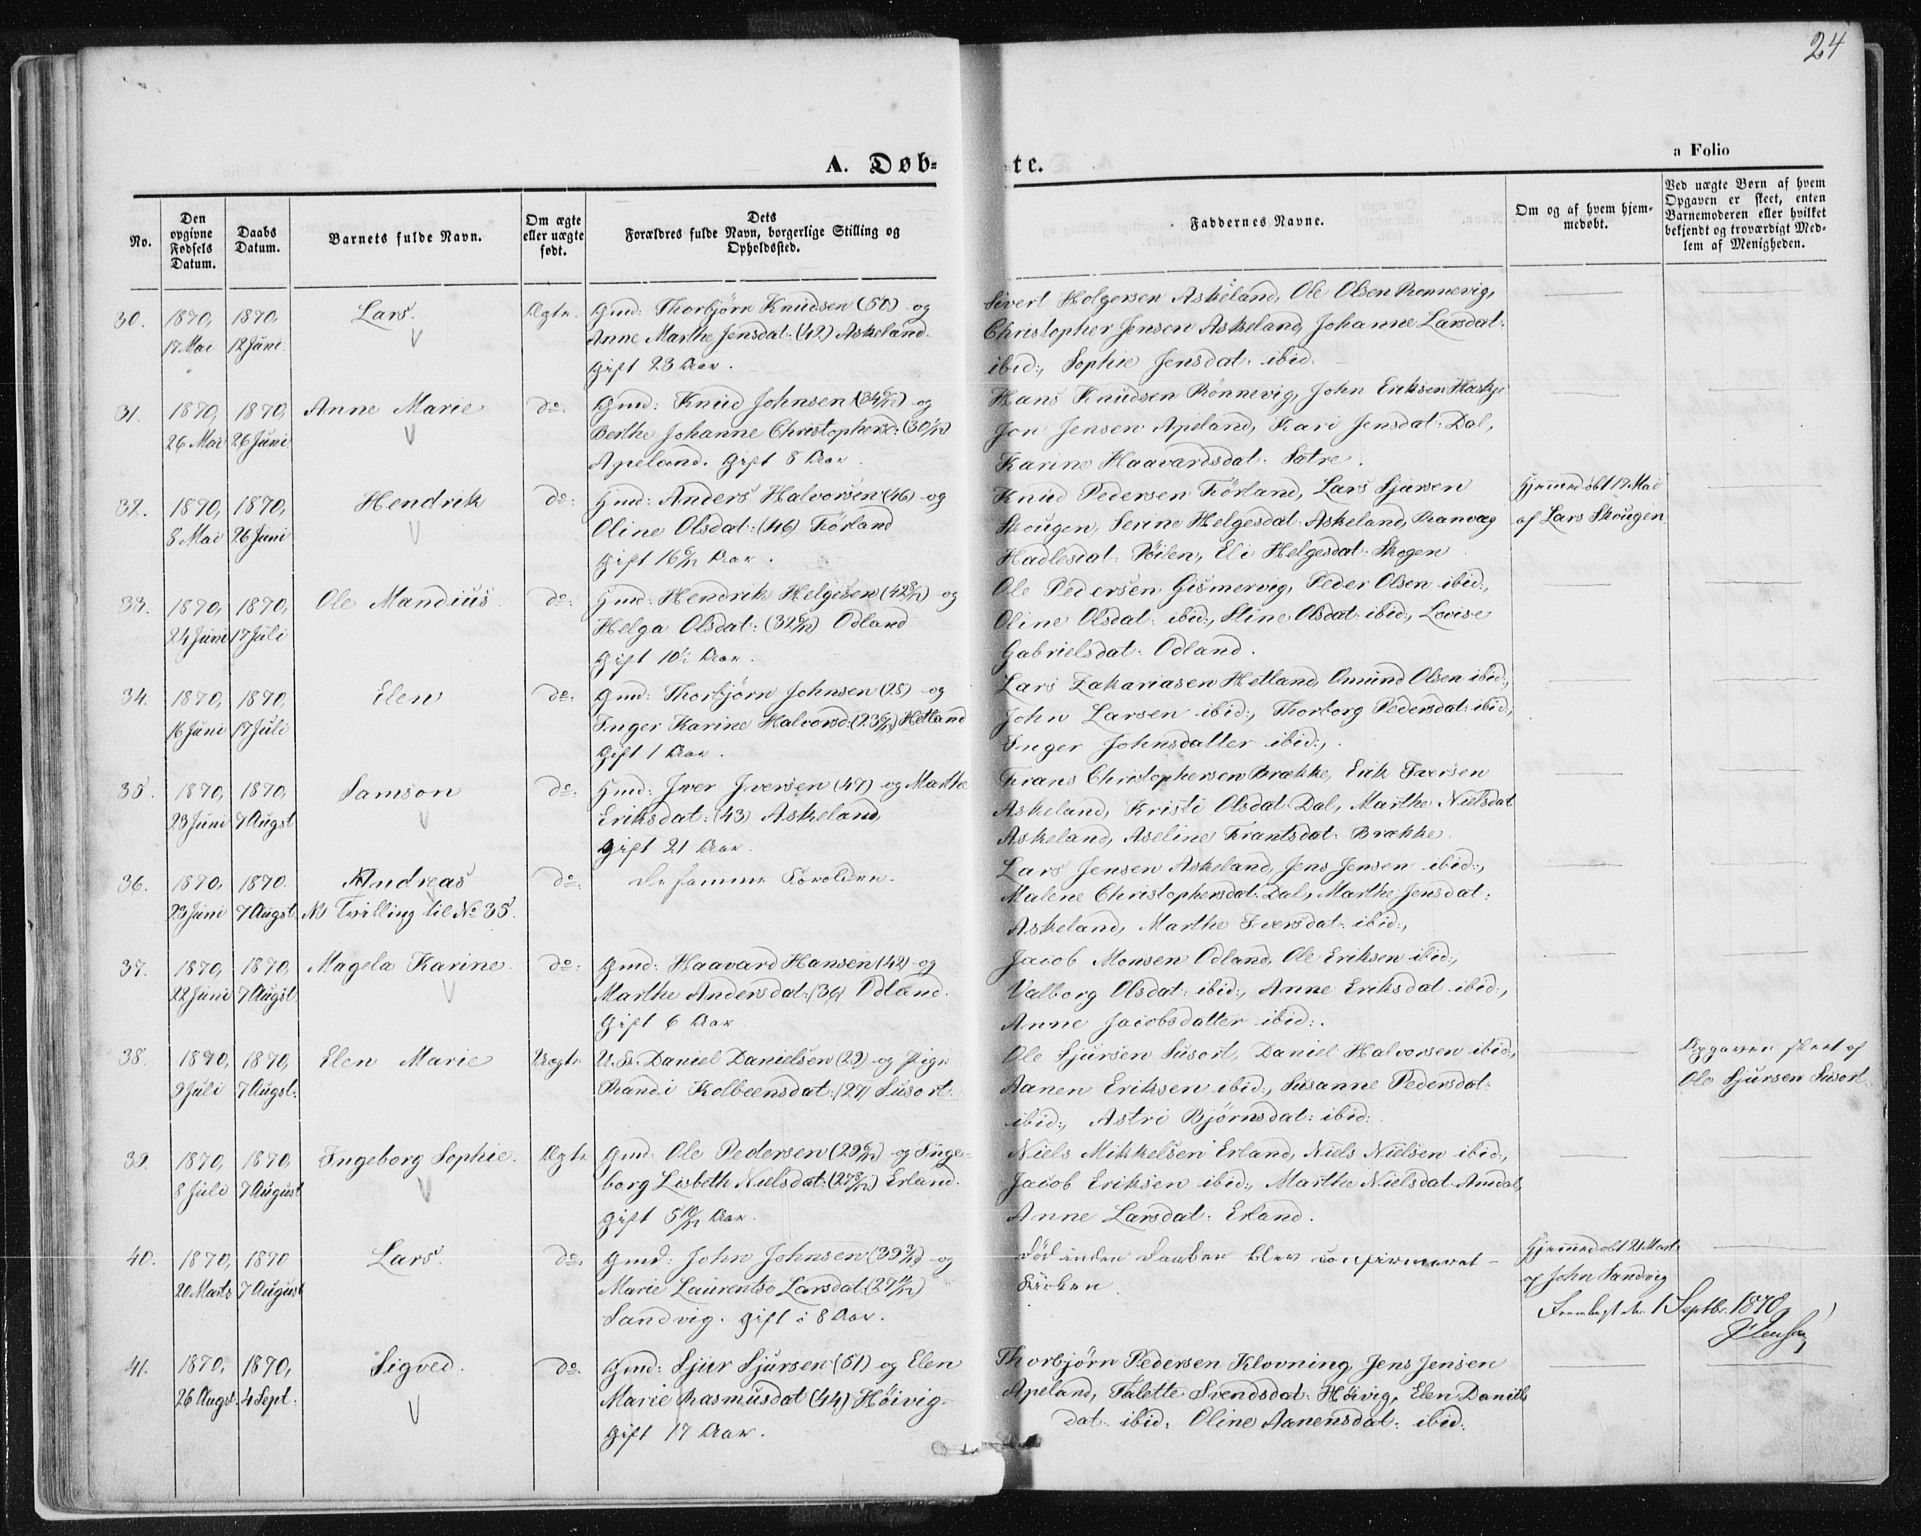 24
A. Døb-
te.
a Folio
No.
Den opgivne Fødsels Datum.
Daabs Datum.
Barnets fulde Navn.
Om ægte eller uægte født.
Dets Forældres fulde Navn, borgerlige Stilling og Opholdssted.
Faddernes Navne.
Om og af hvem hjemmedøbt.
Ved uægte Børn af hvem Opgaven er skeet, enten Barnemoderen eller hvilket bekjendt og troværdigt Medlem af Menigheden.
30. 1870, 1870, Lars. Ægte. Gmd: Thorbjörn Knudsen og
17 Mai 12 Juni. Anne Marthe Jensdat: (42) Askeland.
Gift 23 Aar.
Sivert Holgersen Askeland, Ole Olsen Rønnevig,
Christopher Jensen Askeland, Johanne Larsdat:
ibid:, Sophie Jensdat: ibid.
31. 1870, 1870, Anne Marie do: Gmd: Knud Johnsen (34 6/12) og
26 Mai 26 Juni Berthe Johanne Christophersd: (30 1/12)
Apeland. Gift 8 Aar.
Hans Knudsen Rönnevig, John Eriksen
Jon Jensen Apeland, Kari Jensdat: Dal,
Karine Haavardsdat: Sætre.
32. 1870, 1870, Hendrik do: Hmd: Anders Halvorsen (46) og
8 Mai 26 Juni Oline Olsdat: (46) Förland
Gift 16 6/12 Aar.
Knud Pedersen Förland, Lars Sjursen
Skougen, Serine Helgesdat: Askeland, Ranvæg
Hadlesdat: Eli Helgesdat: Skogen
Hjemmedöbt 17 Mai
af Lars Skougen
33. 1870, 1870, Ole Mandius. do: Hmd: Hendrik Helgesen (42 8/12) og
24 Juni 17 Juli Helga Olsdat: (32 6/12) Odland
Gift 10 1/2 Aar.
Ole Pedersen Gismervig, Peder Olsen ibid:,
Oline Olsdat: ibid:, Stine Olsdat: ibid:, Lovise
Gabrielsdat: Odland.
34. 1870, 1870, Elen do: Gmd: Thorbjörn Johnsen (28) og
16 Juni 17 Juli Inger Karine Halvorsd: (23 6/12) Hetland
Gift 1 Aar.
Lars Zakariasen Hetland, Omund Olsen ibid:,
John Larsen ibid:, Thorborg Pedersdat: ibid:,
Inger Johnsdatter ibid:,.
35. 1870, 1870, Samson do: Hmd: Iver Iversen (47) og Marthe
23 Juni 7 Augst Eriksdat: (43) Askeland
Gift 21 Aar.
Frans Christophersen Brække, Erik Iversen
Askeland, Kristi Olsdat: Dal, Marthe Nielsdat
Askeland, Aseline Frantsdat: Brække.
36. 1870, 1870. Andreas do: De samme Forældre.
23 Juni 7 Augst. NB Tvilling til No 35.
Lars Jensen Askeland, Jens Jensen ibid:,
Malene Christophersdat: Dal, Marthe Jensdat:
Askeland, Marthe Iversdat: ibid:,
37. 1870, 1870, Magela Karine. do: Gmd: Haavard Hansen (42) og
22 Juni 7 Augst. Marthe Andersdat: (36) Odland.
Gift 6 Aar.
Jacob Monsen Odland, Ole Eriksen ibid:,
Valborg Olsdat: ibid:, Anne Eriksdat: ibid:,
Anne Jacobsdatter ibid:.
38. 1870, 1870, Elen Marie Uægte U.K. Daniel Danielsen (29) og Pige
9 Juli 7 Augst: Randi Kolbeensdat: (27) Susort.
Ole Sjursen Susort, Daniel Halvorsen ibid:,
Aanen Eriksen ibid:, Susanne Pedersdat:
ibid:, Astri Bjørnsdat: ibid:
Opgaven skeet af
Ole Sjursen Susort.
39. 1870, 1870, Ingeborg Sophie. Ægte Gmd: Ole Pedersen (29 6/12) og Inge-
8 Juli 7 August borg Lisbeth Nielsdat: (27 8/12) Erland.
Gift 5 10/12 Aar.
Niels Mikkelsen Erland, Niels Nielsen ibid:,
Jacob Eriksen ibid:, Marthe Nielsdat: Amdal,
Anne Larsdat: Erland.
40. 1870, 1870 Lars. do: Gmd: John Johnsen (39 3/12) og
20 Marts 7 August Marie Laurentse Larsdat: (27 11/12)
Sandvig. Gift i 8 Aar.
Död inden Daaben blev confirmeret i
Kirken.
Hjemmedöbt 21 Marts
af John Sandvig
Fremlagt den 1 Septbr. 1870
41. 1870, 1870, Sigved. do: Gmd: Sjur Sjursen (51) og Elen
26 Augst 4 Sept: Marie Rasmusdat (44) Høivig.
Gift 17 Aar.
Thorbjörn Pedersen Klovning, Jens Jensen
Apeland, Talette Svendsdat: Høivig, Elen Daniels
dat: ibid: Oline Aanensdat: ibid: